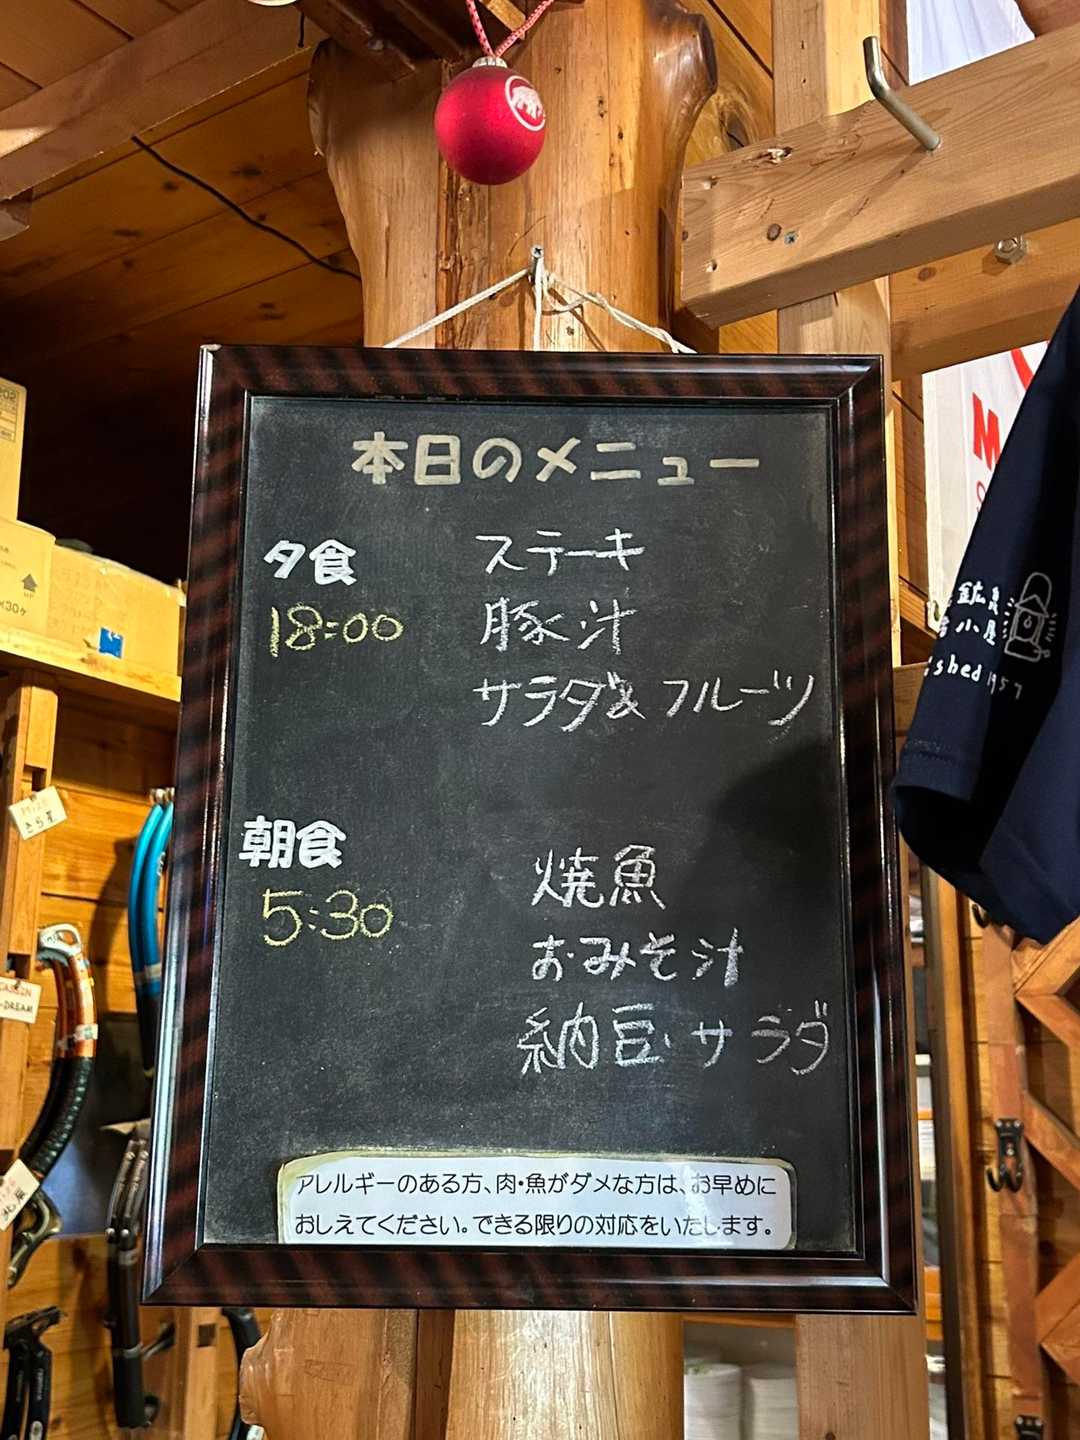 本日のメニュー
夕食
18:00
ステーキ
豚汁
サラダ&フルーツ
朝食
5:30
焼魚
おみそ汁
納豆・サラダ
アレルギーのある方、肉・魚がダメな方は、お早めに
おしえてください。できる限りの対応をいたします。
M
鉱泉
小屋
shed 1957
×30ケ
DREAM